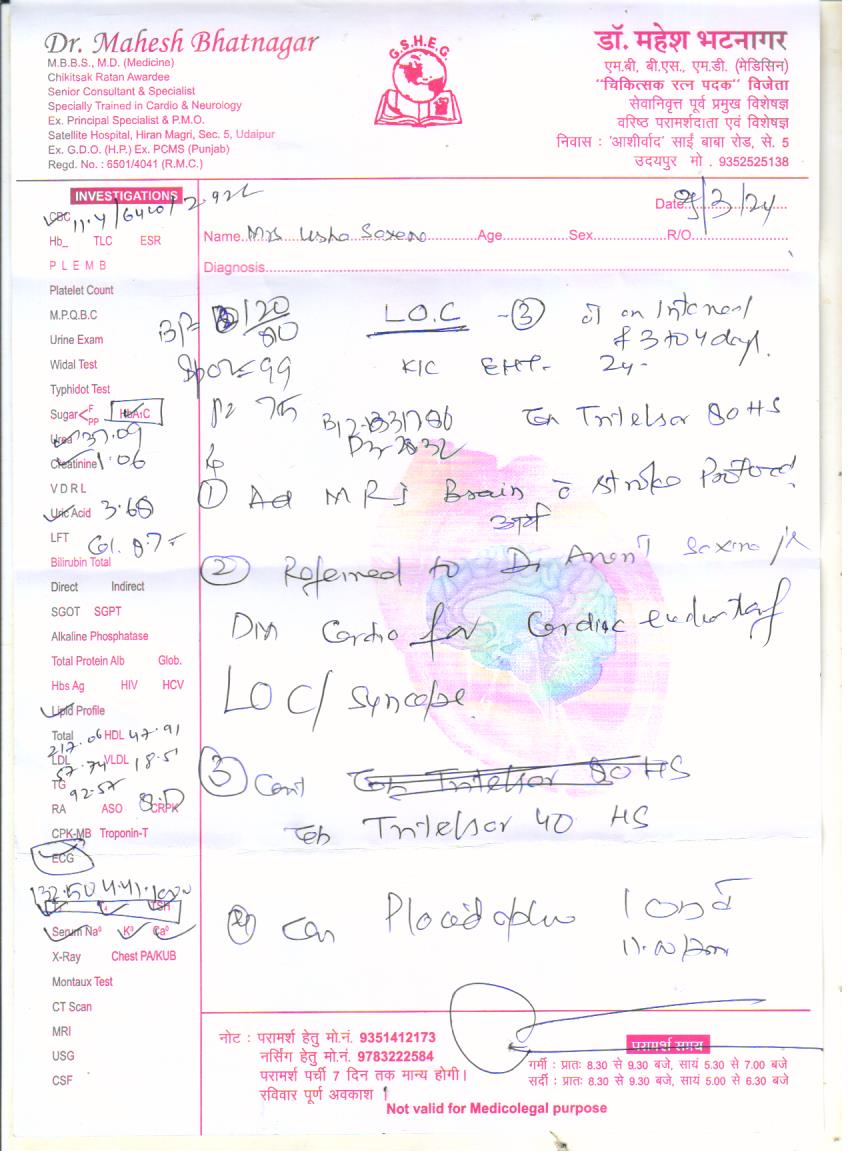 Dr. Mahesh Bhatnagar
M.B.B.S., M.D. (Medicine)
Chikitsak Ratan Awardee
Senior Consultant & Specialist
Specially Trained in Cardio & Neurology
Ex. Principal Specialist & P.M.O.
Satellite Hospital, Hiran Magri, Sec. 5, Udaipur
Ex. G.D.O. (H.P.) Ex. PCMS (Punjab)
Regd. No. : 6501/4041 (R.M.C.)
G.S.H.E.G.
डॉ. महेश भटनागर
एम.बी, बी.एस., एम.डी. (मेडिसिन)
"चिकित्सक रत्न पदक" विजेता
सेवानिवृत्त पूर्व प्रमुख विशेषज्ञ
वरिष्ठ परामर्शदाता एवं विशेषज्ञ
निवास : 'आशीर्वाद' साईं बाबा रोड, से. 5
उदयपुर मो . 9352525138
INVESTIGATIONS
CBC 11.4/6400/2.92L
Hb_ TLC ESR
P L E M B
Platelet Count
M.P.Q.B.C
Urine Exam
Widal Test
Typhidot Test
Sugar < F PP HbA1C
Urea 37.09
Creatinine 1.06
V D R L
Uric Acid 3.68
LFT
Bilirubin Total
Direct Indirect
SGOT SGPT
Alkaline Phosphatase
Total Protein Alb Glob.
Hbs Ag HIV HCV
Lipid Profile
Total HDL 47.91
217.06
LDL VLDL 18.51
57.74
TG
92.57
RA ASO CRPK
CPK-MB Troponin-T
ECG
TSH
Serum Na⁰ K⁰ Ca⁰
X-Ray Chest PA/KUB
Montaux Test
CT Scan
MRI
USG
CSF
Date 9/3/24
Name Mrs Usha Saxena Age Sex R/O
Diagnosis
BP 120/80 L.O.C - 3 on Interval
3 to 4 days.
SpO2 99 K/C
B12
D3
1 Ad MRI Brain c stroke Protocol
2 Referred to Dr Anant Saxena
DM Cardio for Cardiac evaluation of
LOC/ Syncope
3 Cont Tab Intelsor 80 HS
Tab Intelsor 40 HS
4 Placid plus
नोट : परामर्श हेतु मो.नं. 9351412173
नर्सिंग हेतु मो.नं. 9783222584
परामर्श पर्ची 7 दिन तक मान्य होगी।
रविवार पूर्ण अवकाश
परामर्श समय
गर्मी : प्रातः 8.30 से 9.30 बजे, सायं 5.30 से 7.00 बजे
सर्दी : प्रातः 8.30 से 9.30 बजे, सायं 5.00 से 6.30 बजे
Not valid for Medicolegal purpose